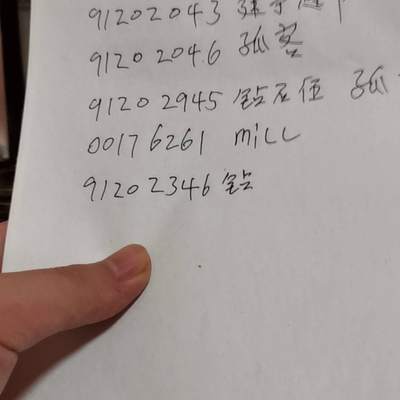 91202043
91202046 孤客
91202945 钻石恒 孤
00176261 mill
91202346 钻